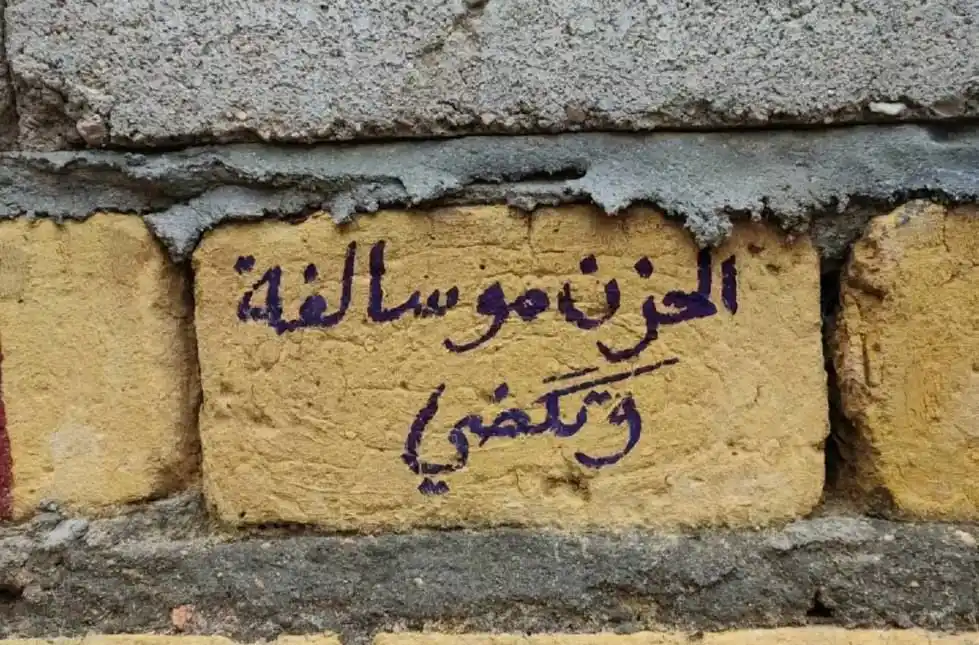 الحزن مو سالفة
وتگضي